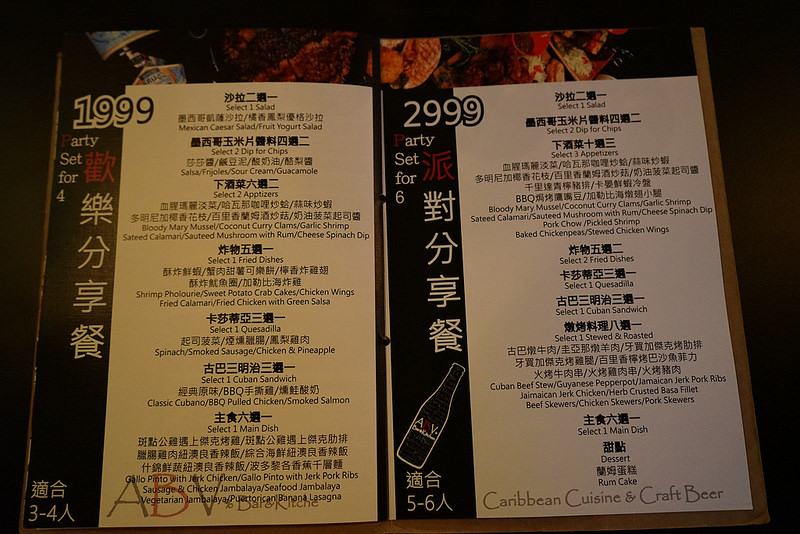 1999
Party
Set
for
4
歡樂分享餐
適合
3-4人
沙拉二選一
Select 1 Salad
墨西哥凱薩沙拉/橘香鳳梨優格沙拉
Mexican Caesar Salad/Fruit Yogurt Salad
墨西哥玉米片醬料四選二
Select 2 Dip for Chips
莎莎醬/鹹豆泥/酸奶油/酪梨醬
Salsa/Frijoles/Sour Cream/Guacamole
下酒菜六選二
Select 2 Apptizers
血腥瑪麗淡菜/哈瓦那咖哩炒蛤/蒜味炒蝦
多明尼加椰香花枝/百里香蘭姆酒炒菇/奶油菠菜起司醬
Bloody Mary Mussel/Coconut Curry Clams/Garlic Shrimp
Sateed Calamari/Sauteed Mushroom with Rum/Cheese Spinach Dip
炸物五選一
Select 1 Fried Dishes
酥炸鮮蝦/蟹肉甜薯可樂餅/檸香炸雞翅
酥炸魷魚圈/加勒比海炸雞
Shrimp Pholourie/Sweet Potato Crab Cakes/Chicken Wings
Fried Calamari/Fried Chicken with Green Salsa
卡莎蒂亞三選一
Select 1 Quesadilla
起司菠菜/煙燻臘腸/鳳梨雞肉
Spinach/Smoked Sausage/Chicken & Pineapple
古巴三明治三選一
Select 1 Cuban Sandwich
經典原味/BBQ手撕雞/燻鮭酸奶
Classic Cubano/BBQ Pulled Chicken/Smoked Salmon
主食六選一
Select 1 Main Dish
斑點公雞遇上傑克烤雞/斑點公雞遇上傑克肋排
臘腸雞肉紐澳良香辣飯/綜合海鮮紐澳良香辣飯
什錦鮮蔬紐澳良香辣飯/波多黎各香蕉千層麵
Gallo Pinto with Jerk Chicken/Gallo Pinto with Jerk Pork Ribs
Sausage & Chicken Jambalaya/Seafood Jambalaya
Vegetarian Jambalaya/Puertorican Banana Lasagna
ABV % Bar&Kitche
2999
Party
Set
for
6
派對分享餐
ABV
適合
5-6人
沙拉二選一
Select 1 Salad
墨西哥玉米片醬料四選二
Select 2 Dip for Chips
下酒菜十選三
Select 3 Appetizers
血腥瑪麗淡菜/哈瓦那咖哩炒蛤/蒜味炒蝦
多明尼加椰香花枝/百里香蘭姆酒炒菇/奶油菠菜起司醬
千里達青檸豬排/卡晏鮮蝦冷盤
BBQ焗烤鷹嘴豆/加勒比海燉翅小腿
Bloody Mary Mussel/Coconut Curry Clams/Garlic Shrimp
Sateed Calamari/Sauteed Mushroom with Rum/Cheese Spinach Dip
Pork Chow /Pickled Shrimp
Baked Chickenpeas/Stewed Chicken Wings
炸物五選二
Select 2 Fried Dishes
卡莎蒂亞三選一
Select 1 Quesadilla
古巴三明治三選一
Select 1 Cuban Sandwich
燉烤料理八選一
Select 1 Stewed & Roasted
古巴燉牛肉/圭亞那燉羊肉/牙買加傑克烤肋排
牙買加傑克烤雞腿/百里香檸檬巴沙魚菲力
火烤牛肉串/火烤雞肉串/火烤豬肉
Cuban Beef Stew/Guyanese Pepperpot/Jamaican Jerk Pork Ribs
Jaimaican Jerk Chicken/Herb Crusted Basa Fillet
Beef Skewers/Chicken Skewers/Pork Skewers
主食六選一
Select 1 Main Dish
甜點
Dessert
蘭姆蛋糕
Rum Cake
Caribbean Cuisine & Craft Beer